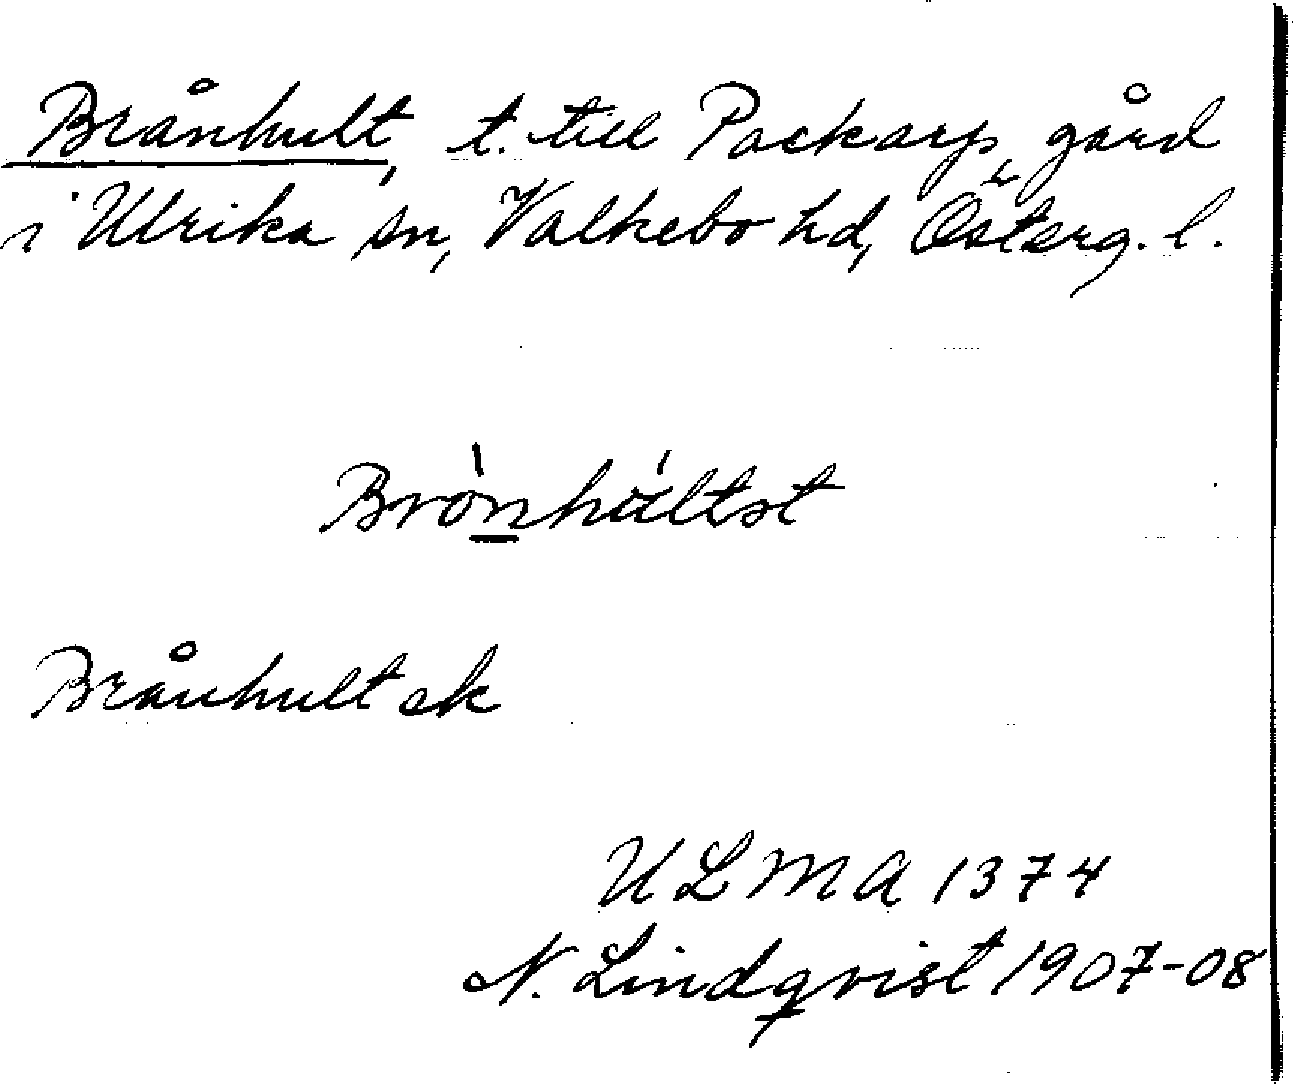 Brånhult, t. till Packarp, gård
i Ulrika sn, Valkebo hd, Österg. l.
Brònhúltst
Brånhult ek
ULMA 1374
N. Lindqvist 1907-08